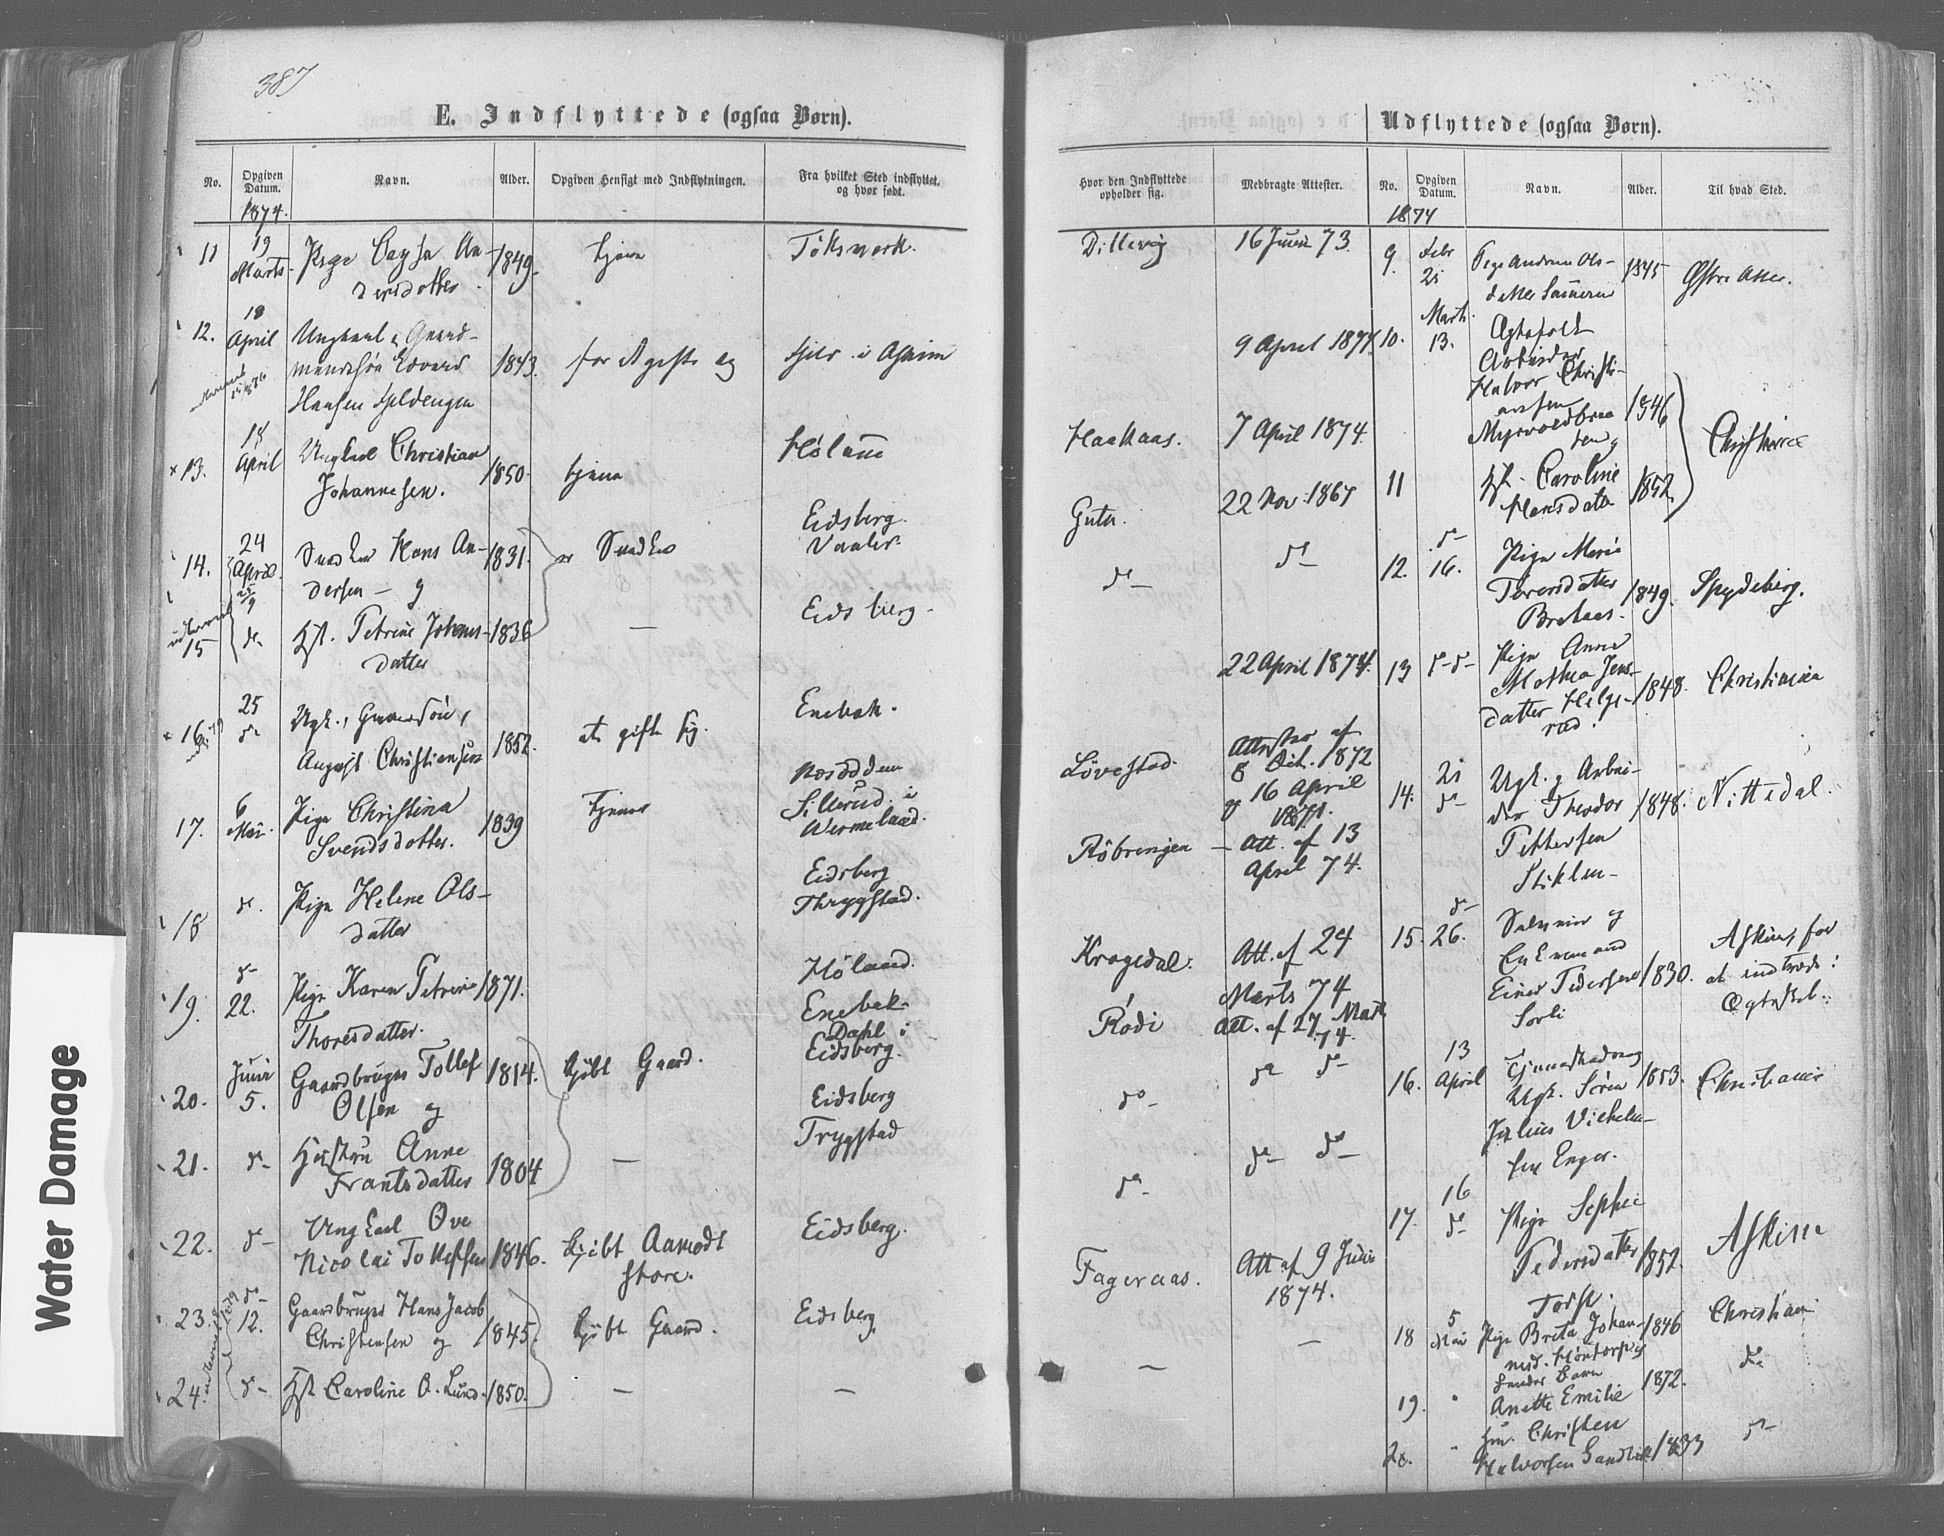 387
E. Indflyttede (ogsaa Børn).
No.
Opgiven Datum.
Navn.
Alder.
Opgiven Hensigt med Indflytningen.
Fra hvilket Sted indflyttet, og hvor født.
1874.
11
19 Marts
Pige Cajsa An-
dersdatter
1849.
tjene
Töksmark.
12.
18 April
Ungkarl, Gaard-
mandssøn Edvard
Hansen
1843.
for Ægteskab
i Askim
13.
18 April
Ungkarl Christian
Johannesen.
1850
tjene
Høland
14.
24 April
Snedker Hans An-
dersen – og
1831.
Snedker
Eidsberg.
Vaaler.
15
do
Hst. Petrine Johans-
datter
1836
—
Eidsberg.
16
25 do
Ungk., Gaardsøn,
August Christiansen
1852.
at gifte sig.
Enebak.
17.
6 Mai
Pige Christina
Svendsdatter.
1839
tjener
Sillerud i
Wermeland.
18
do.
Pige Helene Ols-
datter
Eidsberg
Thrygstad.
19.
do 22.
Pige Karen Petrine
Thoresdatter.
1871.
Høland.
Enebak
20.
Juni 5.
Gaardbruger Tollef
Olsen og
1814.
kjøbt Gaard.
Dahl i
Eidsberg.
21.
do
Hustru Anne
Frantsdatter
1804
—
Eidsberg
Trygstad
22.
do
Ungkarl Ove
Nicolai Tollefsen
1846.
kjøbt Aamodt
store.
Eidsberg.
23.
do 12.
Gaardbruger Hans Jacob
Christensen og
1845
kjøbt Gaard.
Eidsberg
24.
do
Hst. Caroline O. Lund
1850.
—
—
Udflyttede (ogsaa Børn).
Hvor den Indflyttede opholder sig.
Medbragte Attester.
No.
Opgiven Datum.
Navn.
Alder.
Til hvad Sted.
1874
Dillevig
16 Juni 73.
9 April 1874.
Haakaas.
7 April 1874.
Guten.
22 Nov. 1867
do
do
22 April 1874.
Lövestad.
Attester af
8 Oct. 1872
og 16 April
1871.
Röbrengen
Att. af 13
April 74.
Kragedal.
Att. af 24
Marts 74
Rodi
Att. af 27 Mart
74.
do
do do
do
do do
Fageraas.
Att af 9 Juni
1874.
—
—
9.
Febr 21
Pige Andrine Ols-
datter
1845
Østre
10.
Marts 13.
Ægtefolk
Arbeider
Halvor Christi-
ansen
1846
Christiania
11
Hst. Caroline
Hansdatter
1852
12.
do 16.
Pige Maria
1849.
Spydeberg.
13
do do
Pige Anne
Mathea Jens-
datter Helge-
rud.
1848.
Christiania
14.
21 do
Ungk. og Arbei-
der Theodor
Pettersen
1848.
Nittedal.
15.
do 26.
og
Enkemand
Einer Pedersen
Sorli
1830.
Askim, for
at indtræde i
Ægteskab.
16.
13 April
Ungk. Sören
Julius Vilhelm-
sen Enger.
1853.
Christiania
17.
16 do
Pige Sophie
Pedersdatter
1852.
Askim
18
5 Mai
Pige Brita Johan-
1846
Christiania
19.
"
Anette Emilie
1872.
do
20.
"
Christen
Halvorsen
1833
do
Water Damage